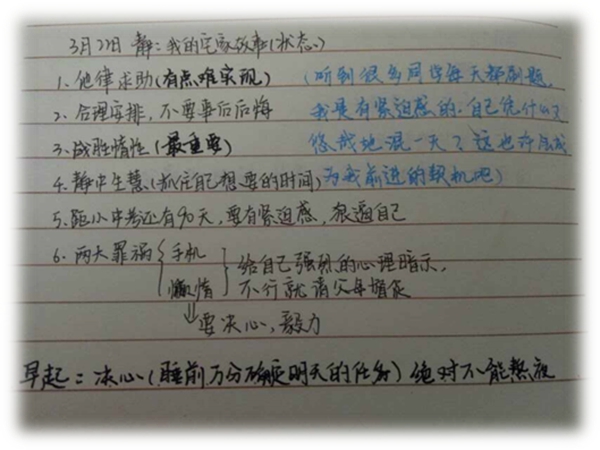 3月22日 静:我的宅家故事(状态)
1、他律求助(有点难实现) (听到很多同学每天都刷题,
2、合理安排,不要事后后悔 我是有紧迫感的.自己凭什么
3、战胜惰性(最重要) 悠哉地混一天?这也许会成
4、静中生慧(抓住自己想要的时间) 为我前进的契机吧)
5、距小中考还有90天,要有紧迫感,狠逼自己
6、两大罪祸 手机 给自己强烈的心理暗示,
懒惰 不行就请父母督促
要决心,毅力
早起:决心(睡前万分确定明天的任务)绝对不能熬夜